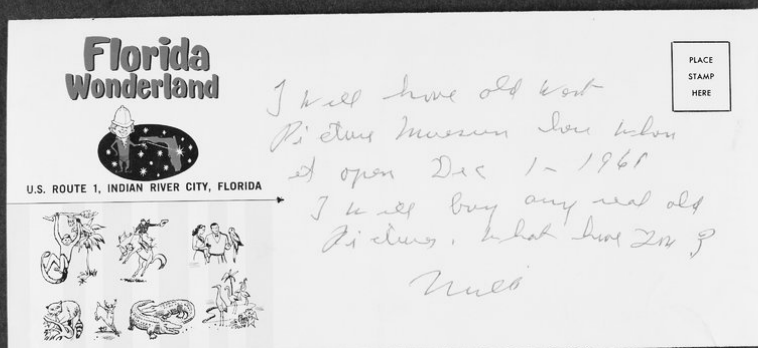 Florida
Wonderland
U.S. ROUTE 1, INDIAN RIVER CITY, FLORIDA
PLACE
STAMP
HERE
I will have old West
Picture Museum here when
it open Dec 1-
I will buy any real old
Pictures. What have you ?